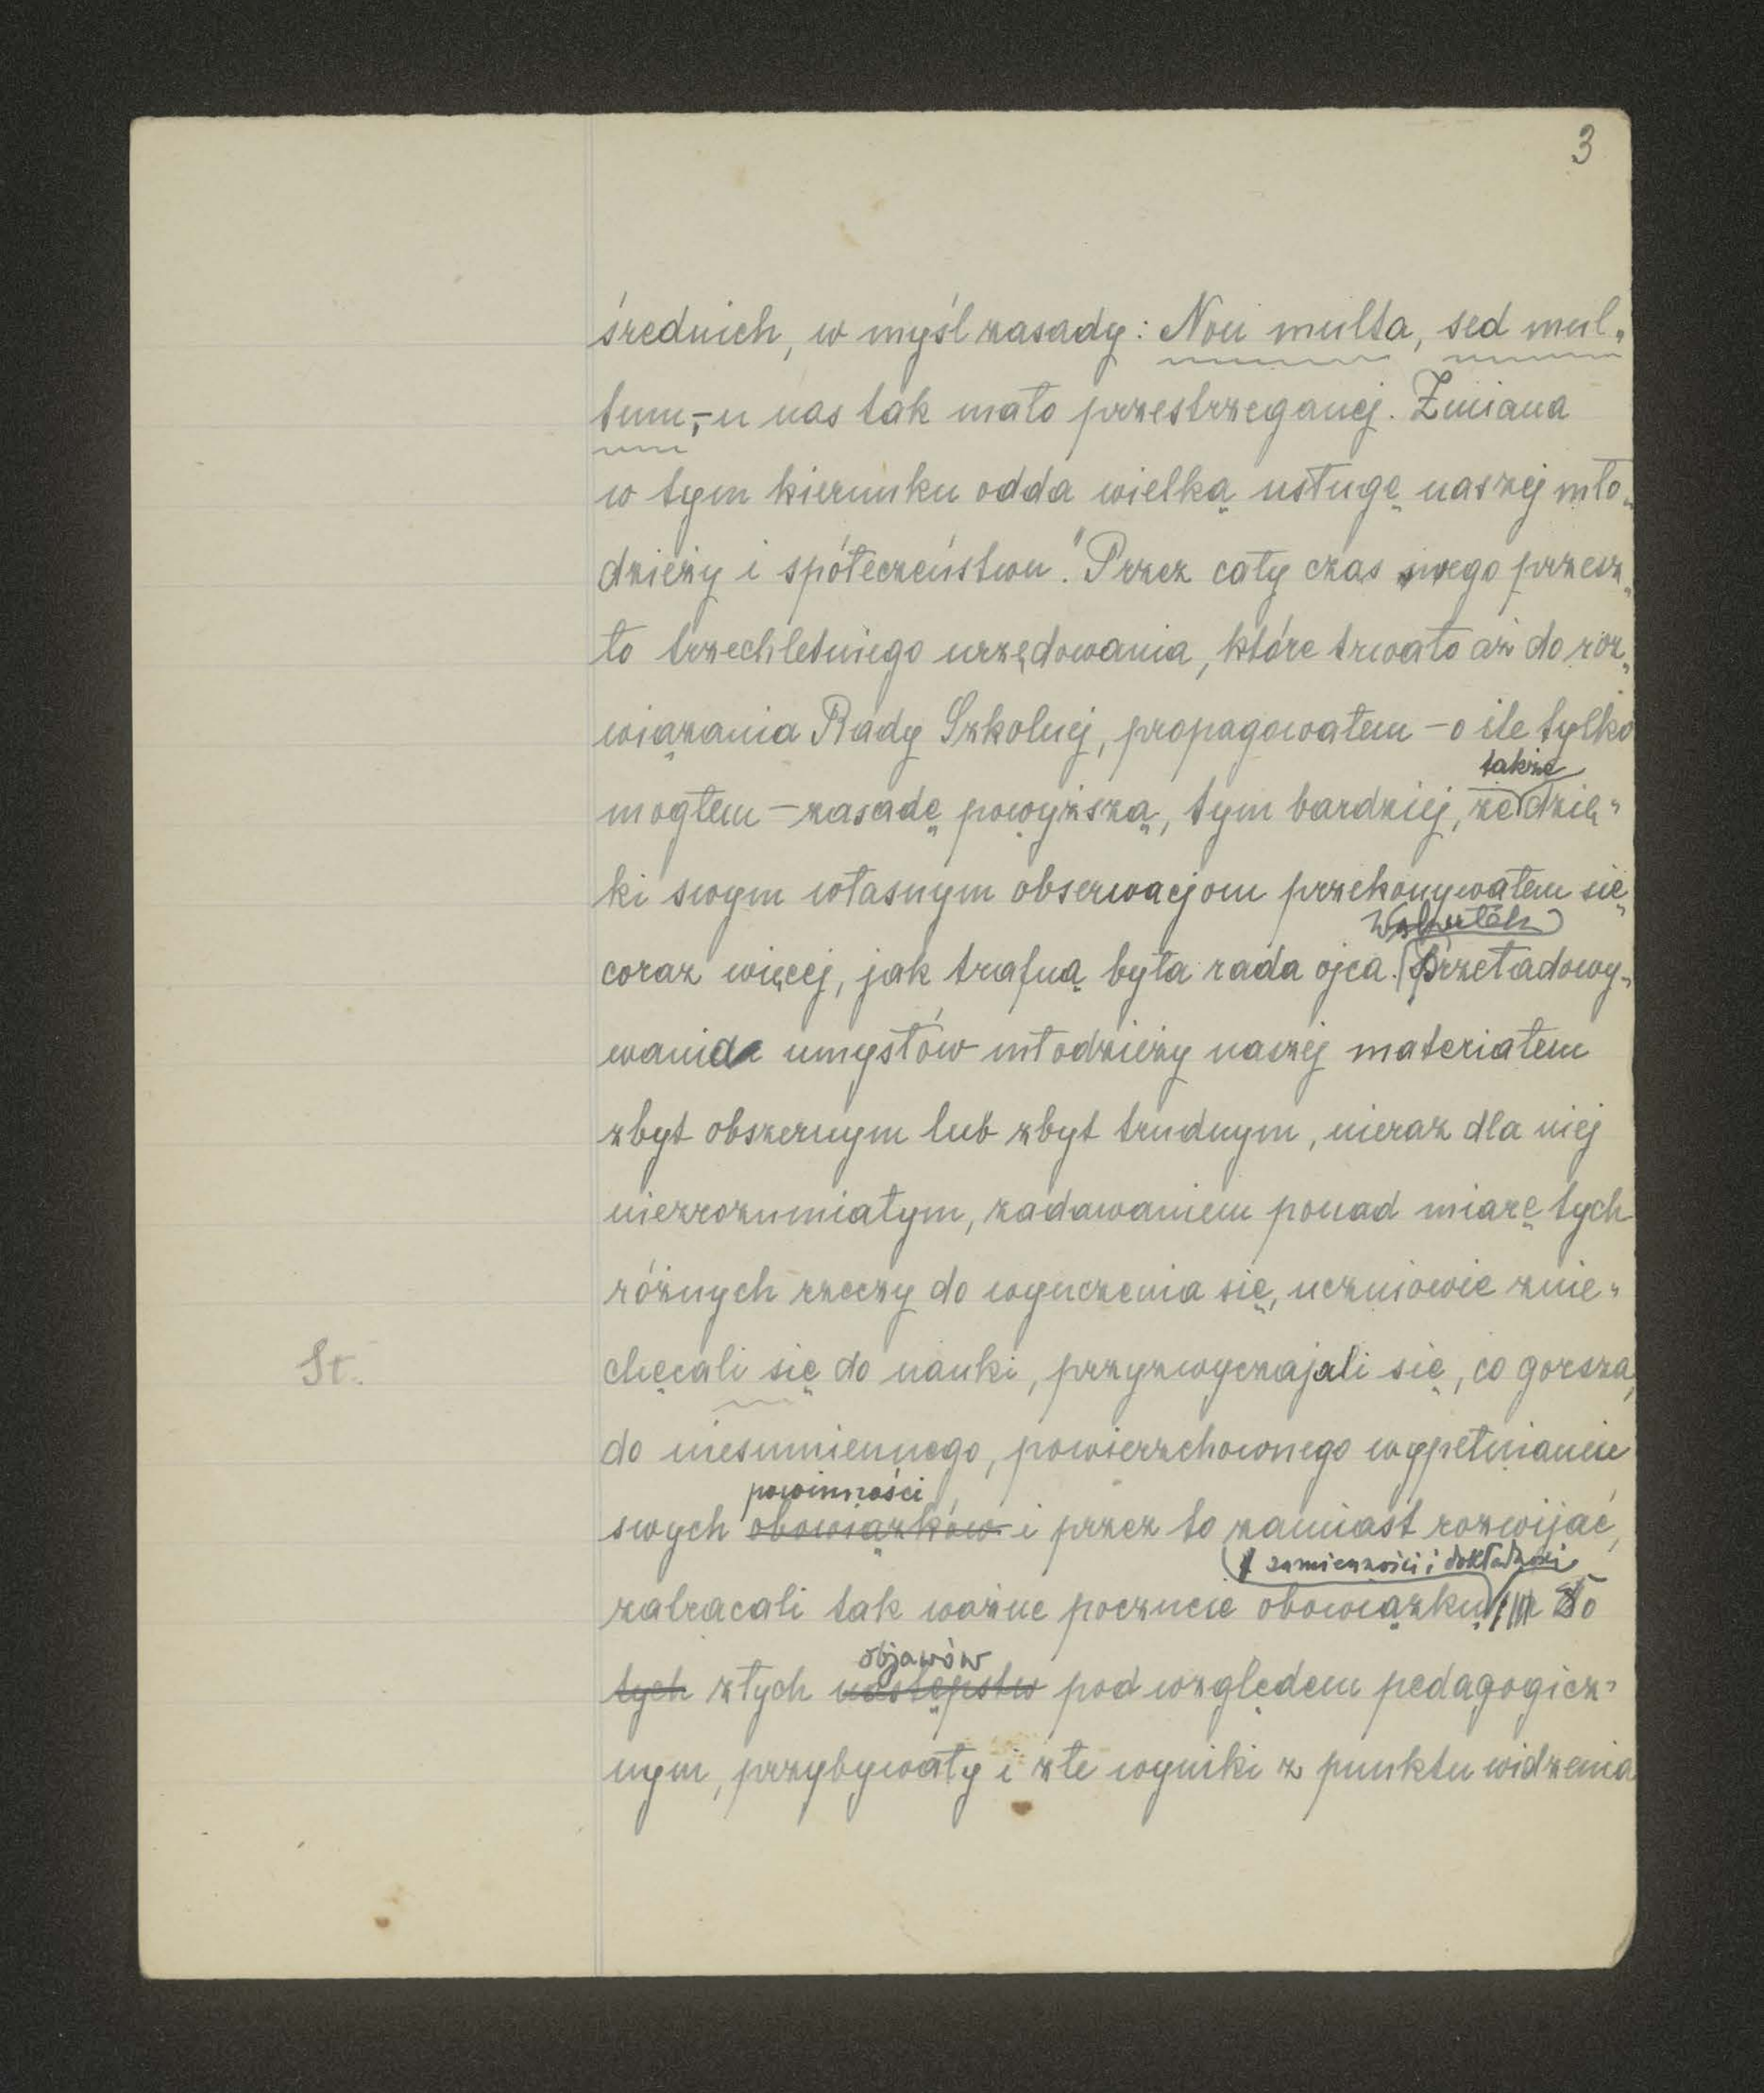 3
średnich, w myśl zasady: Non multa, sed mul„
tum,–u nas tak mało przestrzeganej. Zmiana
w tym kierunku odda wielką usługę naszej mło„
dzieży i spółeczeństwu." Przez cały czas swego przesz„
ło trzechletniego urzędowania, które trwało aż do roz„
wiązania Rady Szkolnej, propagowałem – o ile tylko
także
mogłem – zasadę powyższą, tym bardziej, że dzię„
ki swym własnym obserwacjom przekonywałem się
Wskutek
coraz więcej, jak trafną była rada ojca. przeładowy„
wania umysłów młodzieży naszej materiałem
zbyt obszernym lub zbyt trudnym, nieraz dla niej
niezrozumiałym, zadawaniem ponad miarę tych
różnych rzeczy do wyuczenia się, uczniowie znie„
St.
chęcali się do nauki, przyzwyczajali się, co gorsza,
do niesumiennego, powierzchownego wypełnianie
powinności
swych obowiązków i przez to zamiast rozwijać,
sumienności i dokładności
zatracali tak ważne poczucie obowiązku Do
objawów
tych złych następstw pod względem pedagogicz„
nym, przybywały i złe wyniki z punktu widzenia